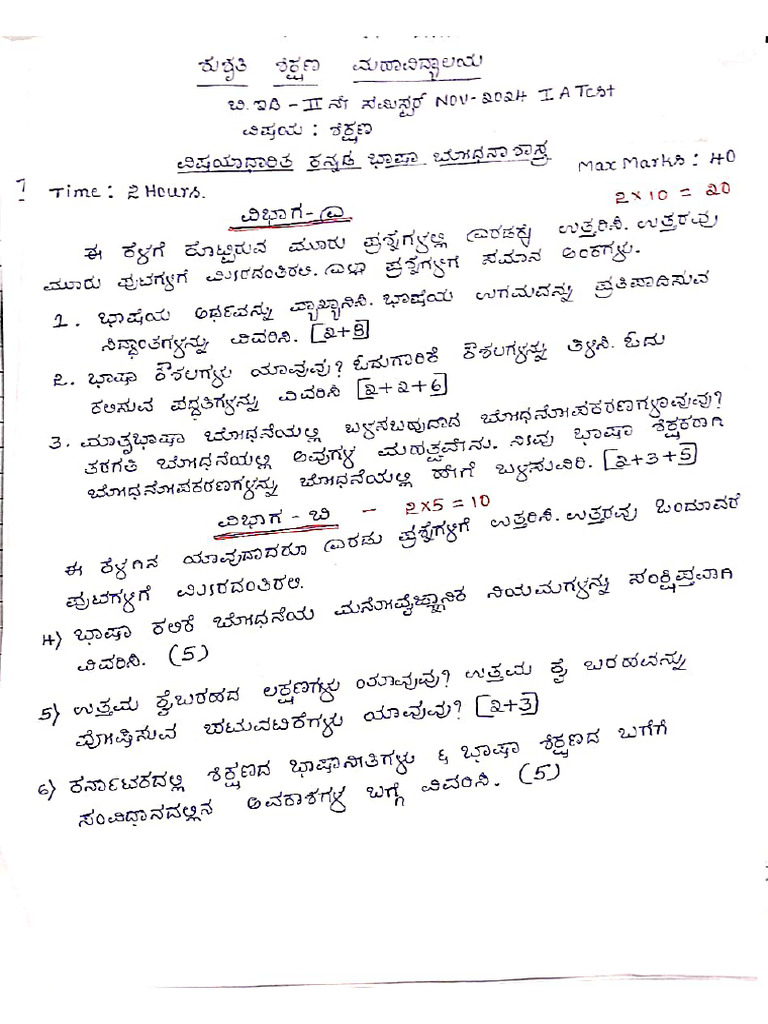 ಶುಶೃತಿ ಶಿಕ್ಷಣ ಮಹಾವಿದ್ಯಾಲಯ
ಬಿ.ಇಡಿ - II ನೇ ಸೆಮಿಸ್ಟರ್ NOV-2024 I A Test
ವಿಷಯ : ಶಿಕ್ಷಣ
ವಿಷಯಾಧಾರಿತ ಕನ್ನಡ ಭಾಷಾ ಬೋಧನಾ ಶಾಸ್ತ್ರ
Time : 2 Hours. Max Marks : 40
ವಿಭಾಗ-ಎ 2×10 = 20
ಈ ಕೆಳಗೆ ಕೊಟ್ಟಿರುವ ಮೂರು ಪ್ರಶ್ನೆಗಳಲ್ಲಿ ಎರಡಕ್ಕೆ ಉತ್ತರಿಸಿ. ಉತ್ತರವು
ಮೂರು ಪುಟಗಳಿಗೆ ಮೀರದಂತಿರಲಿ. ಎಲ್ಲಾ ಪ್ರಶ್ನೆಗಳಿಗೆ ಸಮಾನ ಅಂಕಗಳು.
1. ಭಾಷೆಯ ಅರ್ಥವನ್ನು ವ್ಯಾಖ್ಯಾನಿಸಿ. ಭಾಷೆಯ ಉಗಮವನ್ನು ಪ್ರತಿಪಾದಿಸುವ
ಸಿದ್ಧಾಂತಗಳನ್ನು ವಿವರಿಸಿ. [2+8]
2. ಭಾಷಾ ಕೌಶಲಗಳು ಯಾವುವು? ಓದುಗಾರಿಕೆ ಕೌಶಲಗಳನ್ನು ತಿಳಿಸಿ. ಓದು
ಕಲಿಸುವ ಪದ್ಧತಿಗಳನ್ನು ವಿವರಿಸಿ [2+2+6]
3. ಮಾತೃಭಾಷಾ ಬೋಧನೆಯಲ್ಲಿ ಬಳಸಬಹುದಾದ ಬೋಧನೋಪಕರಣಗಳಾವುವು?
ತರಗತಿ ಬೋಧನೆಯಲ್ಲಿ ಅವುಗಳ ಮಹತ್ವವೇನು. ನೀವು ಭಾಷಾ ಶಿಕ್ಷಕರಾಗಿ
ಬೋಧನೋಪಕರಣಗಳನ್ನು ಬೋಧನೆಯಲ್ಲಿ ಹೇಗೆ ಬಳಸುವಿರಿ. [2+3+5]
ವಿಭಾಗ - ಬಿ - 2×5 = 10
ಈ ಕೆಳಗಿನ ಯಾವುದಾದರೂ ಎರಡು ಪ್ರಶ್ನೆಗಳಿಗೆ ಉತ್ತರಿಸಿ. ಉತ್ತರವು ಒಂದೂವರೆ
ಪುಟಗಳಿಗೆ ಮೀರದಂತಿರಲಿ.
4) ಭಾಷಾ ಕಲಿಕೆ ಬೋಧನೆಯ ಮನೋವೈಜ್ಞಾನಿಕ ನಿಯಮಗಳನ್ನು ಸಂಕ್ಷಿಪ್ತವಾಗಿ
ವಿವರಿಸಿ. (5)
5) ಉತ್ತಮ ಕೈಬರಹದ ಲಕ್ಷಣಗಳು ಯಾವುವು? ಉತ್ತಮ ಕೈ ಬರಹವನ್ನು
ಪೋಷಿಸುವ ಚಟುವಟಿಕೆಗಳು ಯಾವುವು? [2+3]
6) ಕರ್ನಾಟಕದಲ್ಲಿ ಶಿಕ್ಷಣದ ಭಾಷಾನೀತಿಗಳು & ಭಾಷಾ ಶಿಕ್ಷಣದ ಬಗೆಗೆ
ಸಂವಿಧಾನದಲ್ಲಿನ ಅವಕಾಶಗಳ ಬಗ್ಗೆ ವಿವರಿಸಿ. (5)